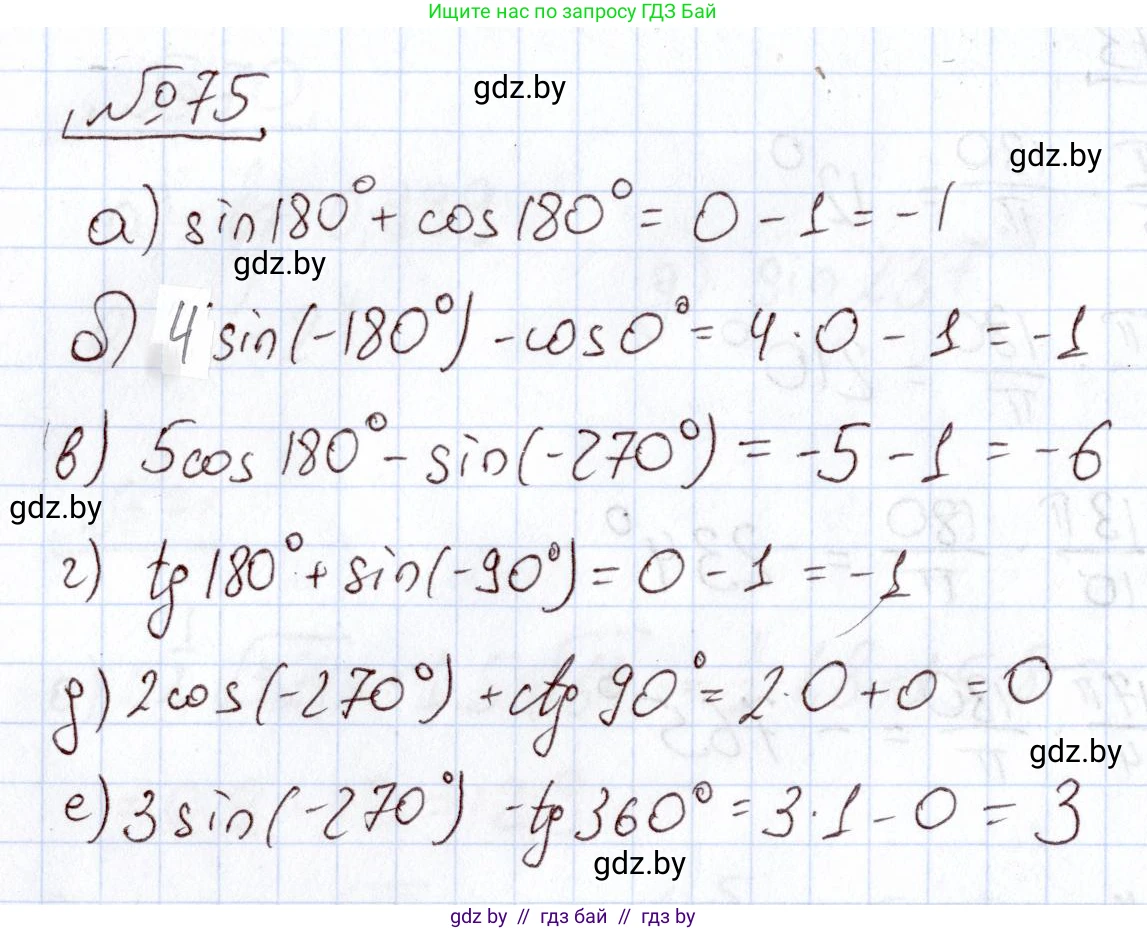 Ищите нас по запросу ГДЗ Бай
№75
gdz.by
gdz.by
а) sin180° + cos180° = 0 - 1 = -1
gdz.by
б) 4 sin(-180°) - cos0° = 4·0 - 1 = -1
в) 5cos180° - sin(-270°) = -5 - 1 = -6
gdz.by
г) tg180° + sin(-90°) = 0 - 1 = -1
д) 2cos(-270°) + ctg90° = 2·0 + 0 = 0
gdz.by
е) 3sin(-270°) - tg360° = 3·1 - 0 = 3
gdz.by
gdz by // гдз бай // гдз by